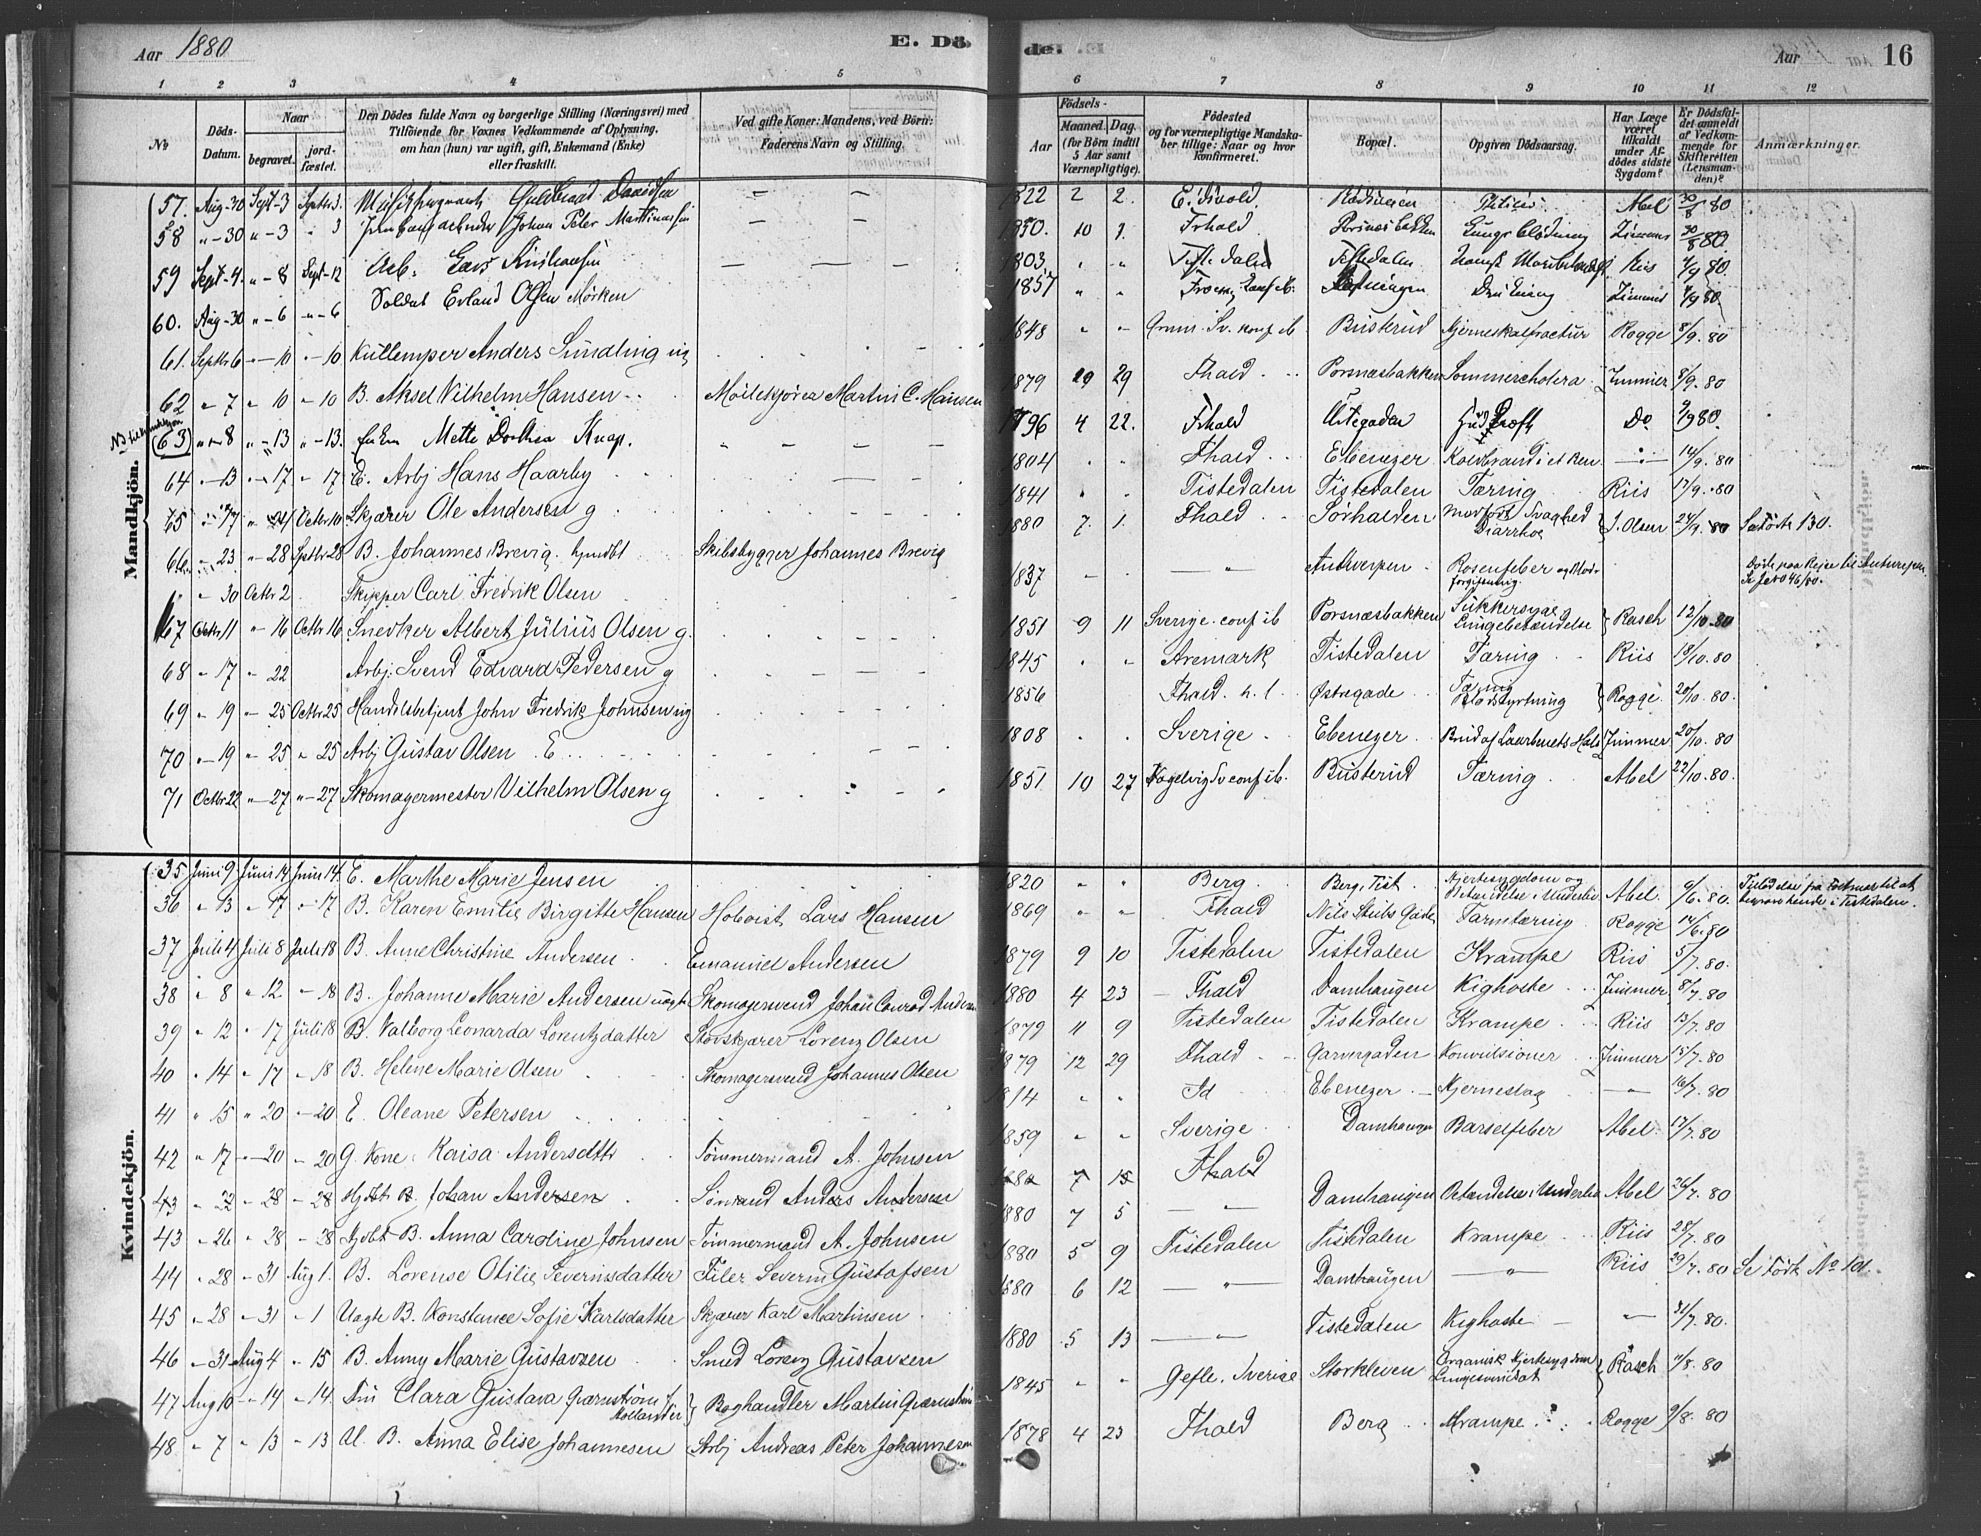 Aar 1880 E. Dö de. Aar 16
1 2 3 4 5 6 7 8 9 10 11 12
No
Döds-Datum.
Naar
begravet.
jord-fæstet.
Den Dödes fulde Navn og borgerlige Stilling (Næringsvei) med
Tilföiende for Voxnes Vedkommende af Oplysning,
om han (hun) var ugift, gift, Enkemand (Enke)
eller fraskilt.
Ved gifte Koner: Mandens, ved Börn:
Faderens Navn og Stilling.
Födsels-
Aar
Maaned. Dag.
(for Börn indtil
5 Aar samt
Værnepligtige).
Födested
og for værnepligtige Mandska-
ber tillige: Naar og hvor
konfirmeret.
Bopæl.
Opgiven Dödsaarsag.
Har Læge
været
tilkaldt
under Af-
dödes sidste
Sygdom?
Er Dödsfal-
det anmeldt
af Vedkom-
mende for
Skifteretten
(Lensman-
den)?
Anmærkninger.
Mandkjön.
57. Aug-30 Sept-3 Septbr 3. Guldbrand Davidsen — — 1822 2 2. Abel 30/8 80
58 " -30 " -3 " 3 Johan Peter Martinussen — — 1850. 10 1. Frhald. Lungeblödning Zimmer 30/8 80
59 Sept-4. " -8 Sept-12 Arb. Lars Kristiansen — — — 1803 " " Tistedalen Tistedalen Riis 7/9 80.
60. Aug-30 " -6 " -6 Soldat Erland Olsen Mörken 1857 " " Drukning Zimmer 7/9 80
61. Septbr 6 " -10 " -10 Anders Sundling ug 1848 " " Sv. conf ib Busterud Hjerneskalfractur Rogge 8/9. 80
62 " 7 " 10 " 10 B. Aksel Vilhelm Hansen Möllekjörer Martin C. Hansen 1879 10 29 Fhald Porsnæsbakken Sommercholera Zimmer 8/9. 80
63 " 8 " -13 " -13. Enken Mette Dorthea Knap. — — 1796 4 22. Frhald Do. 9/9 80.
64 " 13 " 17 " 17 E. Arbj Hans Haarby 1804 " " Fhald Ebenezer Koldbrand i et Ben — " — 14/9. 80
65 " 17 " Octbr 10 Skjærer Ole Andersen g 1841 " " Tistedalen Tistedalen Tæring Riis 17/9. 80
66. " 23 " 28 Septbr 28 B. Johannes Brevig. hjmdbt Skibsbygger Johannes Brevig 1880 7. 1. Fhald Sörhalden Medfödt Svaghed Diarrhoe J. Olsen 24/9. 80 Se Födte 130.
" " 30 Octbr 2 Skipper Carl Fredrik Olsen 1837 — — " — Antwerpen Rosenfeber og Blod-
forgiftning. Döde paa Reise til Antwerpen.
67 Octbr 11 " 16 Octbr 16 Snedker Albert Julius Olsen g. 1851 9 11 Sverige. conf ib Porsnæsbakken Sukkersyge Lungebetændelse Rasch 12/10. 80
68 " 17 " 22 Arbj. Svend Edvard Pedersen g 1845 " " Aremark Tistedalen Tæring Riis 18/10. 80
69 " 19 " 25 Octbr 25 Handelsbetjent John Fredrik Johnsen ug 1856 Fhald. Östregade Tæring Blodstyrtning Rogge. 20/10. 80.
70 " 19 " 25 " 25 Arbj Gustav Olsen E 1808 " " Sverige Ebenezer Brud af Laarbenets Hals Zimmer 20/10. 80
71 Octbr 22 " 27 " 27 Skomagermester Vilhelm Olsen g 1851 10 27 Sv conf ib. Busterud Tæring Abel 22/10. 80.
Kvindekjön.
35 Juni 9 Juni 14 Juni 14. E. Marthe Marie Jensen 1820 " " Berg Berg, Tist. Hjertesygdom og Betændelse i Underliv Abel. 9/6. 80. Tilladelse fra Formand til at
begrave hende i Tistedalen.
36 " 13 " 17 " 17 B. Karen Emilie Birgitte Hansen Hoboist Lars Hansen 1869 " " Fhald Nils Stubs Gade Tarmtæring Rogge 14/6. 80
37 Juli 4 Juli 8 Juli 18 B. Anne Christine Andersen Emanuel Andersen 1879 9 10 Tistedalen Tistedalen Krampe Riis 5/7. 80.
38 " 8 " 12 " 18 B. Johanne Marie Andersen uægte Skomagersvend Johan Conrad Andersen 1880 4 23 Fhald Damhaugen Kighoste Zimmer 8/7. 80
39 " 12 " 17 Juli 18 B. Valborg Leonarda Lorentzdatter Storskjærer Lorenz Olsen 1879 11 9 Tistedalen Tistedalen Krampe Riis 13/7. 80
40 " 14 " 17 " 18 B. Helene Marie Olsen Skomagersvend Johannes Olsen 1879 12 29 Fhald Garvergaden Konvulsioner Zimmer 15/7. 80
41 " 15 " 20 " 20 E. Oleane Petersen 1814 " " Id Ebenezer Hjerneslag — " — 16/7. 80
42 " 17 " 20 " 20 G. Kone. Kaisa Andersdttr Tömmermand A. Johnsen 1859 " " Sverige Damhaugen Barselfeber Abel. 17/7. 80
43 " 22 " 28 " 28 Hjdbt B. Johan Andersen Sömand Anders Andersen 1880 7 15 Fhald
43 " 26 " 28 " 28 Hjdbt B. Anna Caroline Johnsen Tömmermand A. Johnsen 1880 7 5 — " — Damhaugen Betændelse i Underliv Abel 26/7. 80
44 " 28 " 31 Aug 1. B. Lorense Otilie Severinsdatter Filer Severin Gustafsen 1880 5 9 Tistedalen Tistedalen Krampe Riis 28/7. 80
45 " 28 " 31 " 1 Uægte B. Konstance Sofie Karlsdatter Skjærer Karl Martinsen 1880 6 12 — " — Damhaugen — " — Riis 29/7. 80 Se Födte No 101.
46 " 31 Aug 4 " 15 B. Anny Marie Gustavsen Smed Lorenz Gustavsen 1880 5 13 — " — Tistedalen Kighoste — " 31/7. 80.
47 Aug 10 " 14 " 14. Fru Clara Gustava Qvarnström f.
Hollander Boghandler Martin Qvarnström 1845 " " Gefle, Sverige Storkleven Organisk Hjertesygdom Rasch 11/8. 80
48 " 7 " 13 " 13 U. B. Anna Elise Johannesen Arbj Andreas Peter Johannesen 1878 4 23 Fhald Berg Krampe Rogge 9/8. 80